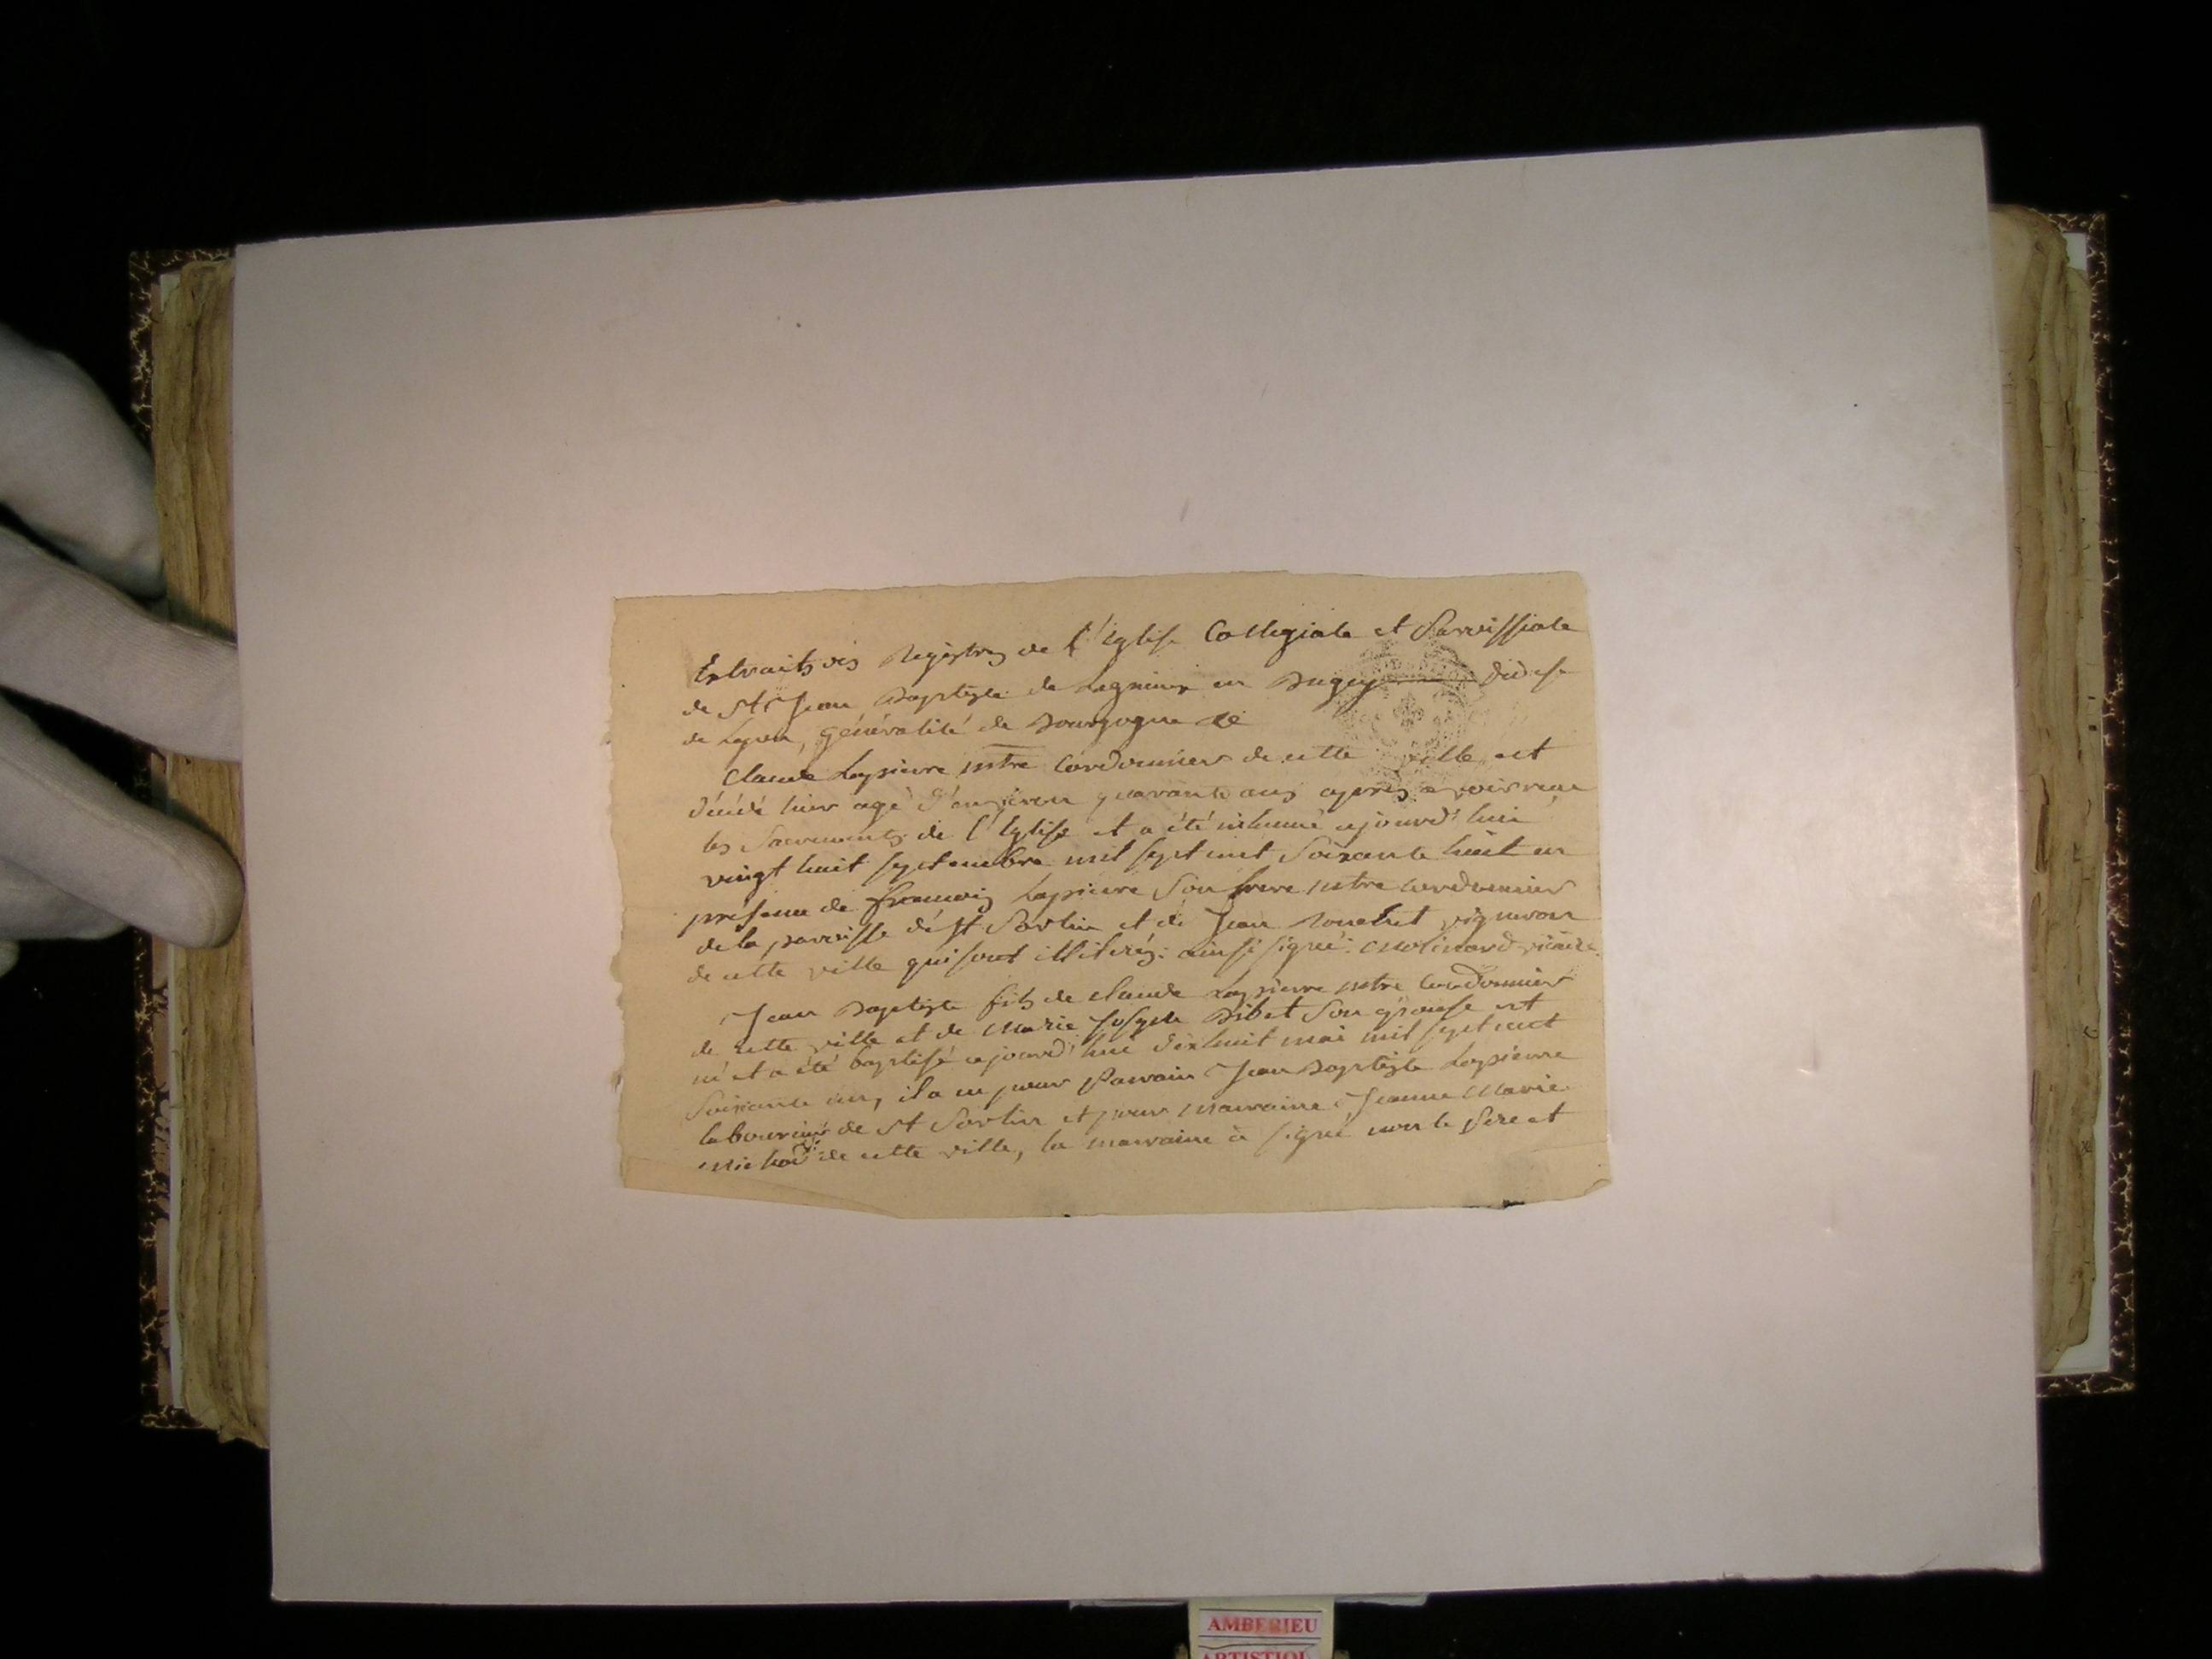 Extraits des Registres de l'Eglise Collegiale et Parroissiale
de St Jean Baptiste de Lagnieu en Bugey diocese
de Lyon, généralité de Bourgogne &c
Claude Lapierre mtre Cordonnier de cette ville est
décédé hier agé d'environ quarante ans apres avoir reçu
les Sacrements de l'Eglise et a été inhumé cejourd'hui
vingt huit septembre mil sept cent soixante huit en
présence de françois Lapierre Son frere mtre cordonnier
de la parroisse de St Sorlin et de Jean vigneron
de cette ville qui sont illitérés: ainsi signé: Molinard vicaire.
Jean Baptiste fils de claude Lapierre mtre Cordonnier
de cette ville et de Marie Josepte Bibet Son épouse est
né et a été baptisé cejourd'hui dixhuit mai mil sept cent
soixante un, il a eu pour Parrain Jean Baptiste Lapierre
laboureur de St Sorlin et pour Marraine Jeanne Marie
Michod de cette ville, la marraine a signé non le Pere et
AMBERIEU
ARTISTIQU